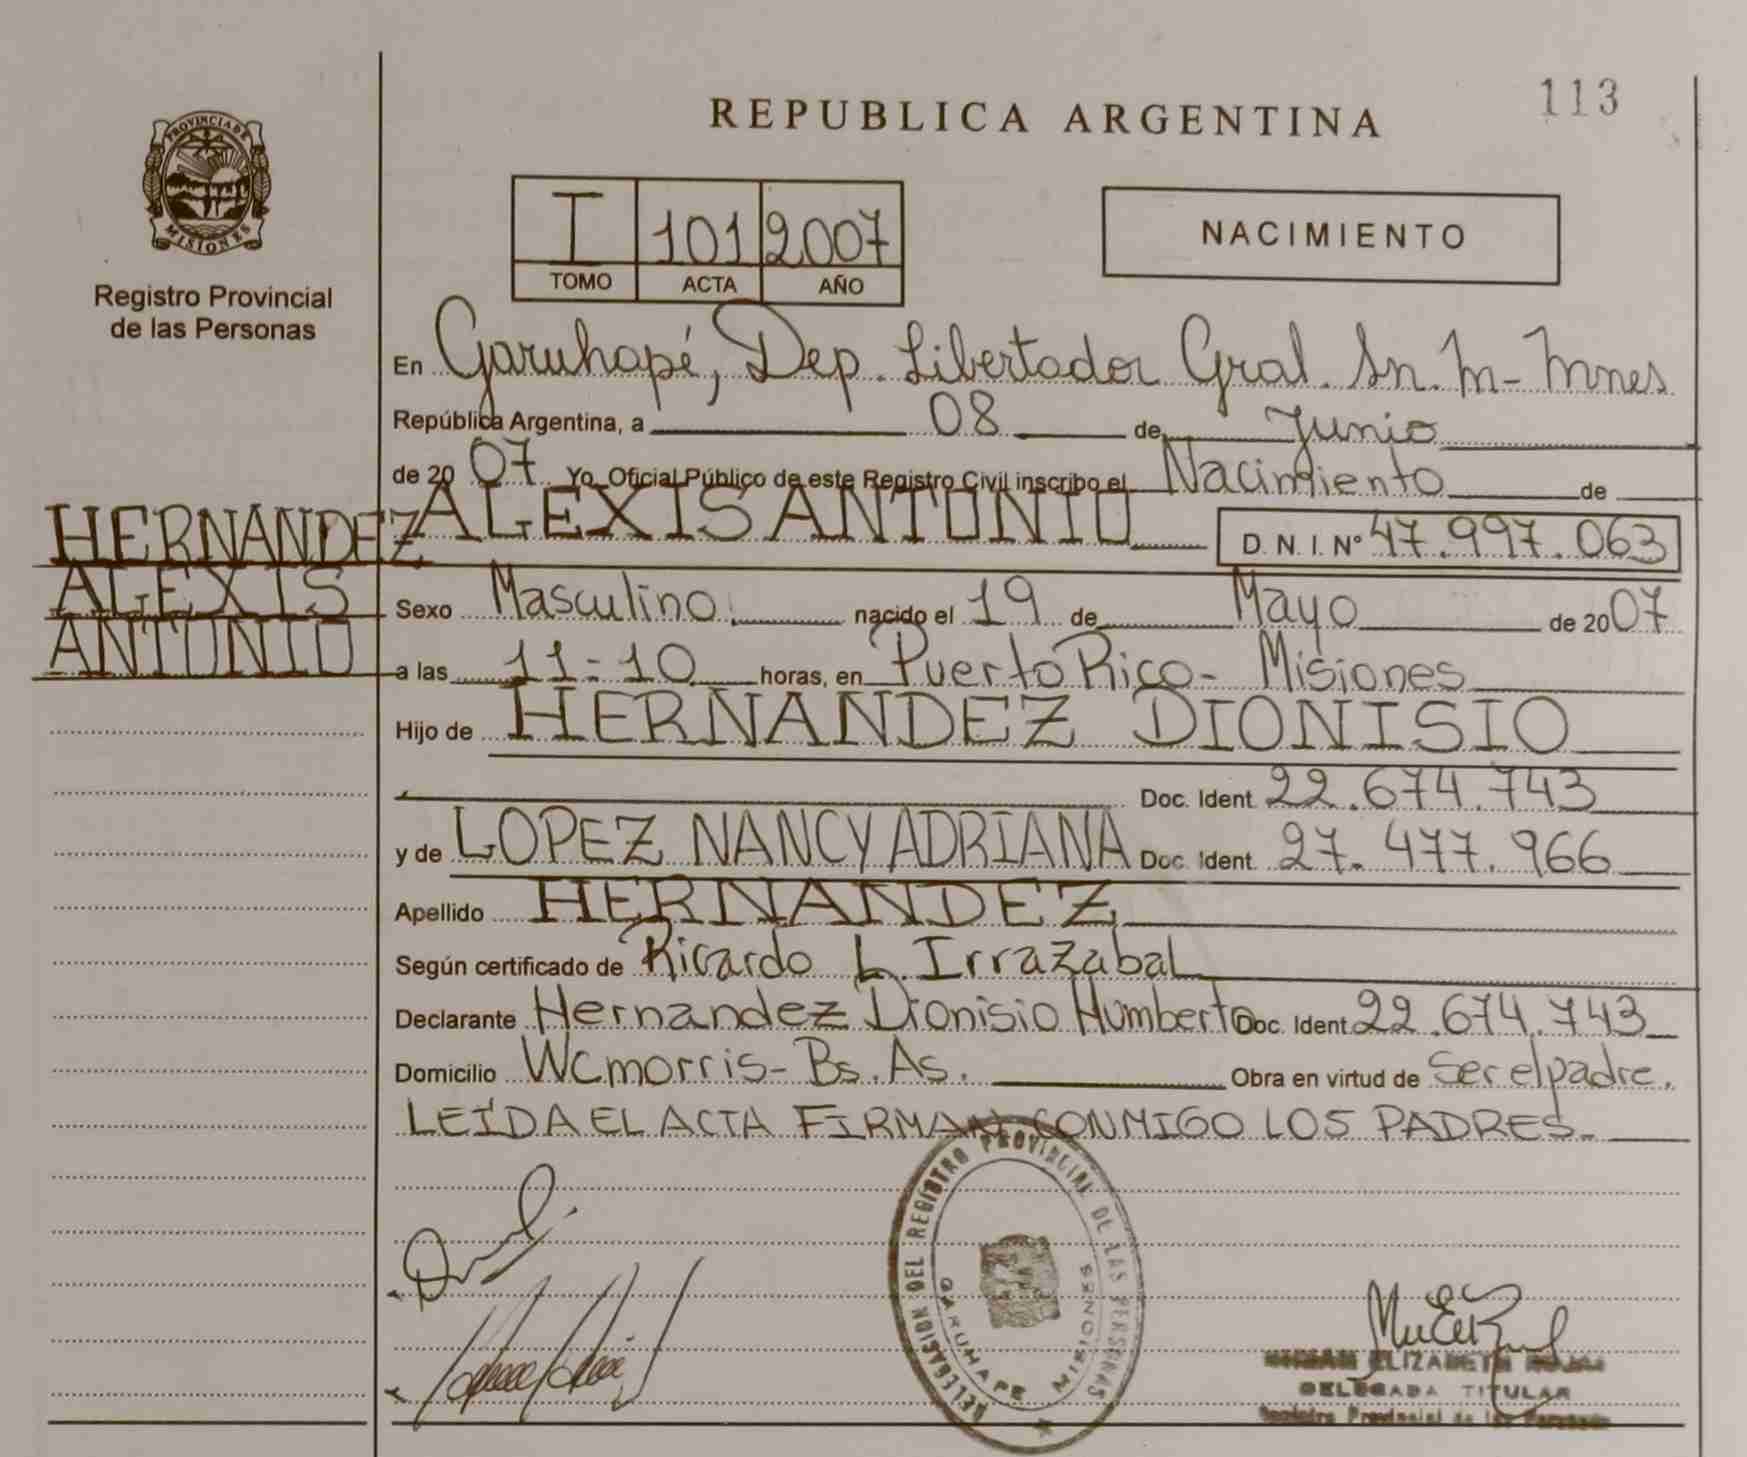 113
REPUBLICA ARGENTINA
PROVINCIA DE
MISIONES
Registro Provincial
de las Personas
I 101 2007
TOMO ACTA AÑO
NACIMIENTO
En Garuhapé, Dep. Libertador Gral. Sn. M- Mnes
República Argentina, a 08 de Junio
de 2007 Yo, Oficial Público de este Registro Civil inscribo el Nacimiento de
HERNANDEZ
ALEXIS
ANTONIO
ALEXIS ANTONIO D. N. I. Nº 47.997.063
Sexo Masculino. nacido el 19 de Mayo de 2007
a las 11-10 horas, en Puerto Rico- Misiones
Hijo de HERNANDEZ DIONISIO
Doc. Ident. 22.674.743
y de LOPEZ NANCY ADRIANA Doc. Ident. 27.477.966
Apellido HERNANDEZ
Según certificado de Ricardo L. Irrazabal
Declarante Hernandez Dionisio Humberto Doc. Ident. 22.674.743
Domicilio Wcmorris- Bs. As. Obra en virtud de Ser el padre.
LEÍDA EL ACTA FIRMAN CONMIGO LOS PADRES.
DELEGACION DEL REGISTRO PROVINCIAL DE LAS PERSONAS
GARUHAPE MISIONES
ELIZABETH
DELEGADA TITULAR
Registro Provincial de las Personas